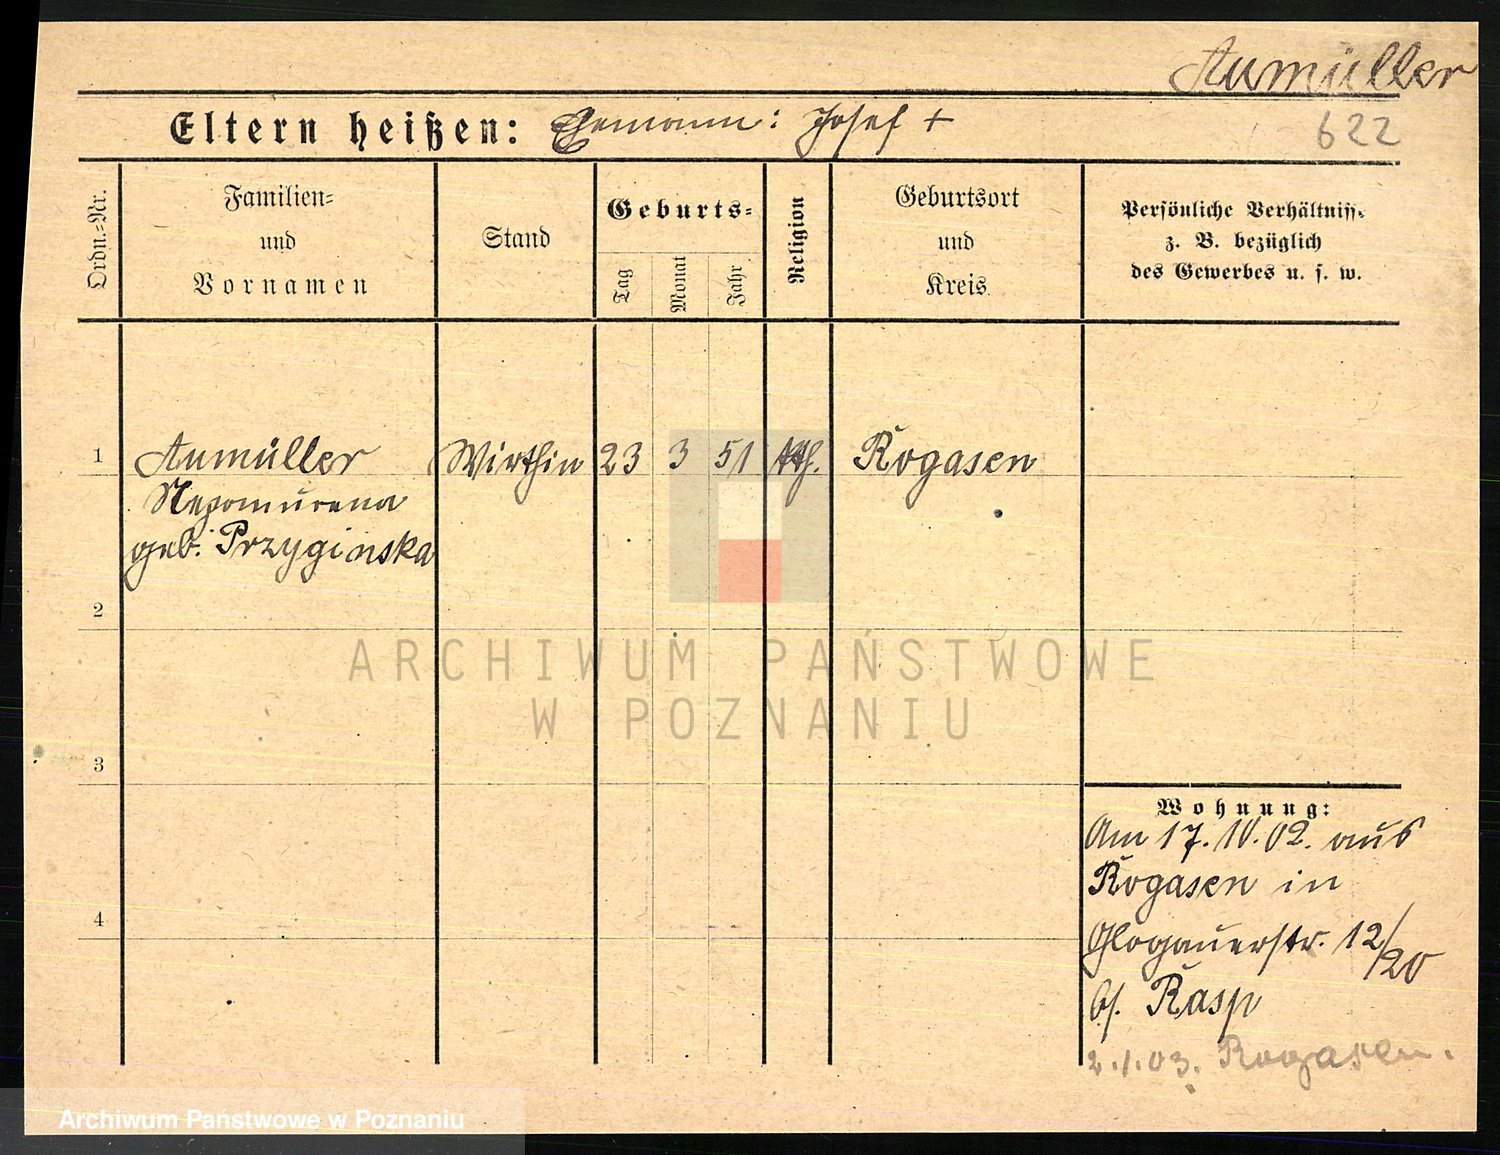 Aumüller
Eltern heißen: Ehemann: Josef +
622
Ordn.-Nr.
Familien-
und
Vornamen
Stand
Geburts-
Tag
Monat
Jahr
Religion
Geburtsort
und
Kreis
Persönliche Verhältniss.
z. B. bezüglich
des Gewerbes u. s. w.
1 Aumüller Wirthin 23 3 51 kth. Rogasen
Nepomucena
geb. Przyginska
2
ARCHIWUM PAŃSTWOWE
W POZNANIU
3
Wohnung:
Am 17.10.02. aus
Rogasen in
4
Glogauerstr. 12/20
b/. Rasp
2.1.03. Rogasen.
Archiwum Państwowe w Poznaniu